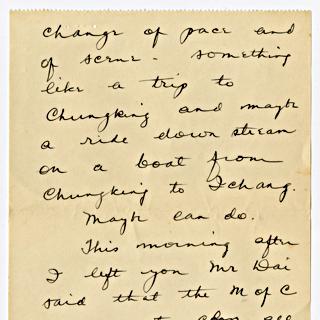 change of pace and
of scene - something
like a trip to
Chungking and maybe
a ride down stream
on a boat from
Chungking to Ichang.
Maybe can do.
This morning after
I left you Mr Dai
said that the M of C